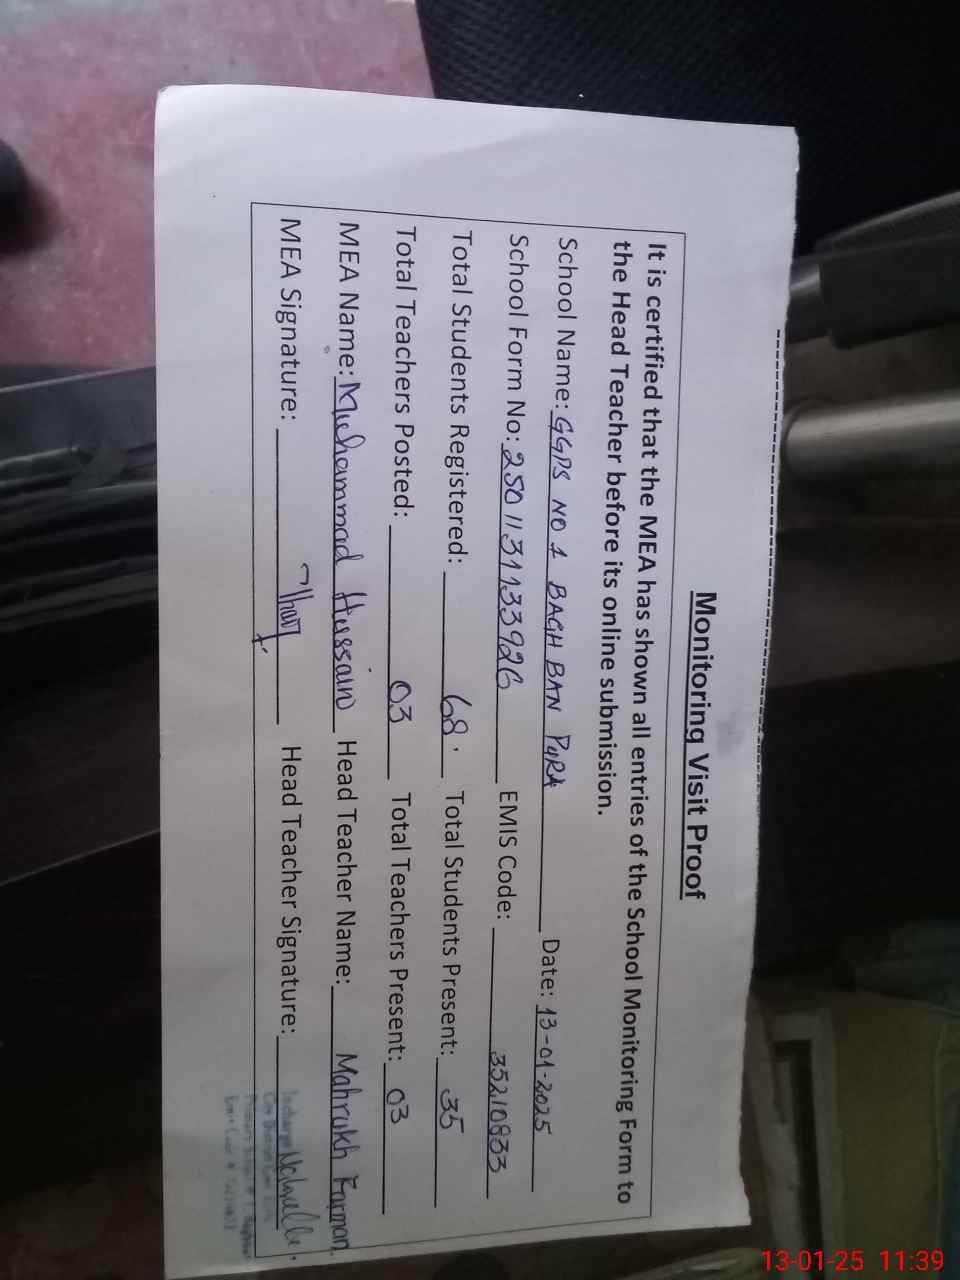 Monitoring Visit Proof
It is certified that the MEA has shown all entries of the School Monitoring Form to
the Head Teacher before its online submission.
School Name: GGPS NO 1 BAGH BAN PURA Date: 13-01-2025
School Form No: 2501131133926 EMIS Code: 35210833
Total Students Registered: 68 Total Students Present: 35
Total Teachers Posted: 03 Total Teachers Present: 03
MEA Name: Muhammad Hussain Head Teacher Name: Mahrukh Farman
MEA Signature: Head Teacher Signature:
Incharge
13-01-25 11:39